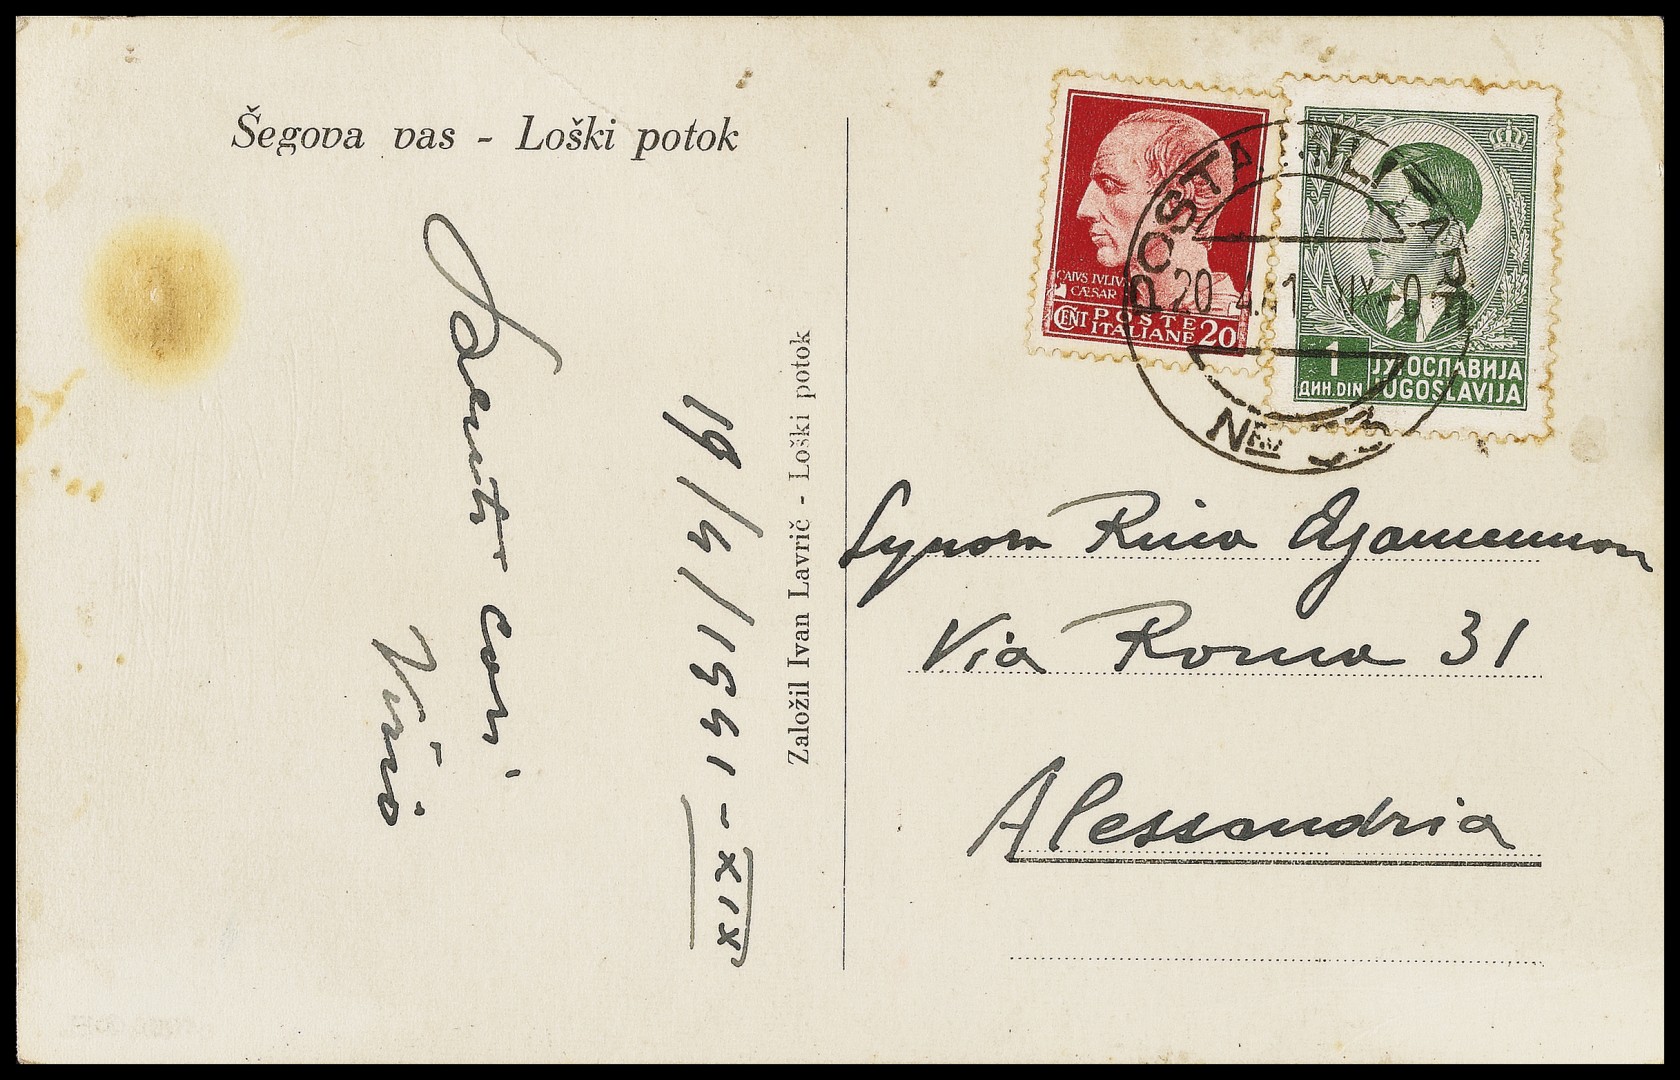 Šegova vas - Loški potok
Saluti cari
19/4/1941-XIX
Založil Ivan Lavrič - Loški potok
CAIVS IVLIV
CÆSAR
CENT POSTE
ITALIANE 20
1
ДИН. DIN
ЈУГОСЛАВИЈА
JUGOSLAVIJA
POSTA MILITARE
20 4 41 XIX-0
Nro
Signora Rina Agamennon
Via Roma 31
Alessandria